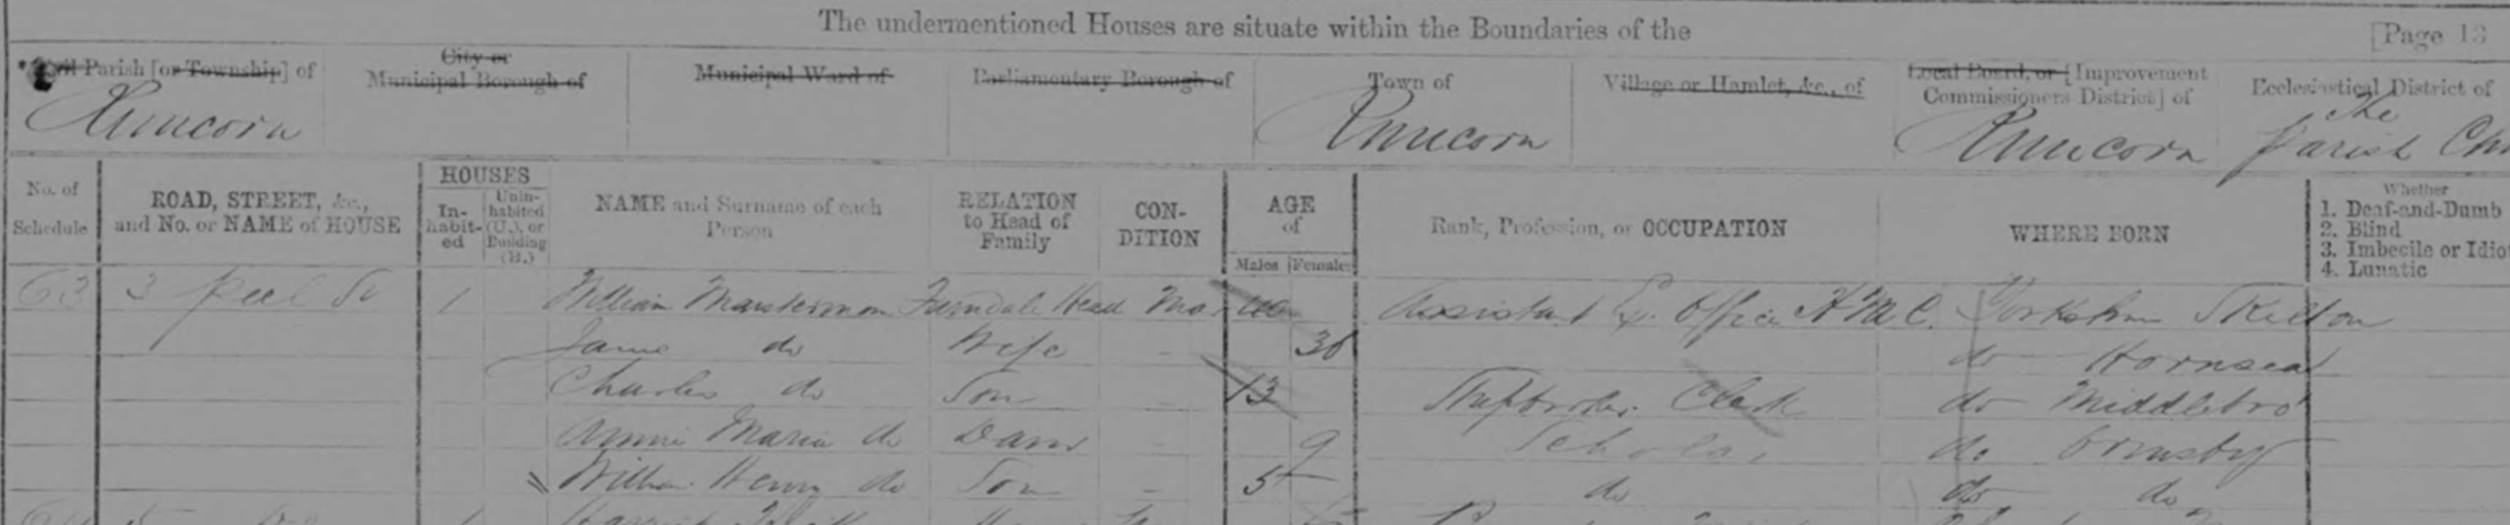 The undermentioned Houses are situate within the Boundaries of the [Page 13
Parish [or Township] of
City or Municipal Borough of
Municipal Ward of
Parliamentary Borough of
Town of
Village or Hamlet, &c., of
Local Board, or [Improvement Commissioners District] of
Ecclesiastical District of
Runcorn Runcorn Runcorn The Parish
No. of Schedule
ROAD, STREET, &c., and No. or NAME of HOUSE
HOUSES
In-habit-ed
Unin-habited (U.), or Building (B.)
NAME and Surname of each Person
RELATION to Head of Family
CON-DITION
AGE of
Males Females
Rank, Profession, or OCCUPATION
WHERE BORN
Whether
1. Deaf-and-Dumb
2. Blind
3. Imbecile or Idio
4. Lunatic
63 3 Peel St 1 William Head Mar Assistant Office H M C. Yorkshire Skelton
Jane do Wife 36 do Hornsea
Charles do Son 13 Clerk do Middlebro
Annie Maria do Daur 9 Scholar do Ormsby
William Henry do Son 5 do do do